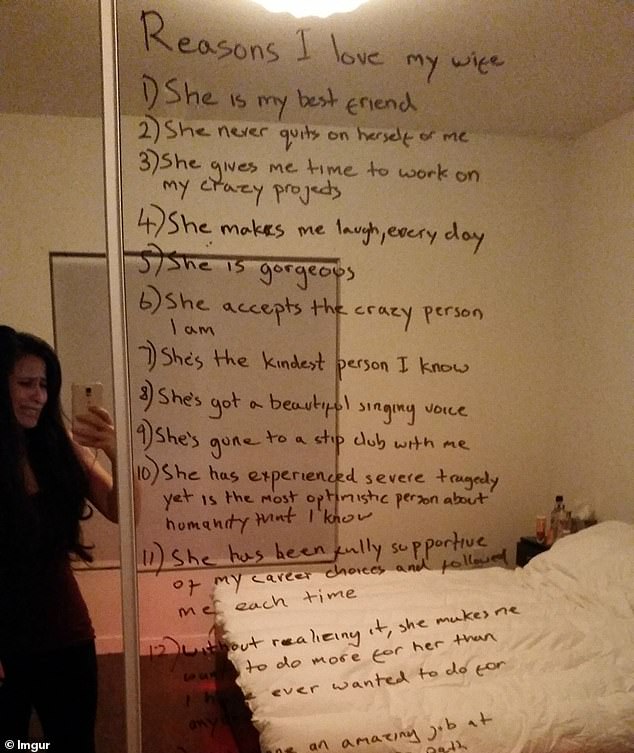 Reasons I love my wife
1) She is my best friend
2) She never quits on herself or me
3) She gives me time to work on
my crazy projects
4) She makes me laugh, every day
5) She is gorgeous
6) She accepts the crazy person
I am
7) She's the kindest person I know
8) She's got a beautiful singing voice
9) She's gone to a stip club with me
10) She has experienced severe tragedy
yet is the most optimistic person about
humanity that I know
11) She has been fully supportive
of my career choices and followed
me each time
12) Without realizing it, she makes me
want to do more for her than
I have ever wanted to do for
an amazing job at
© Imgur